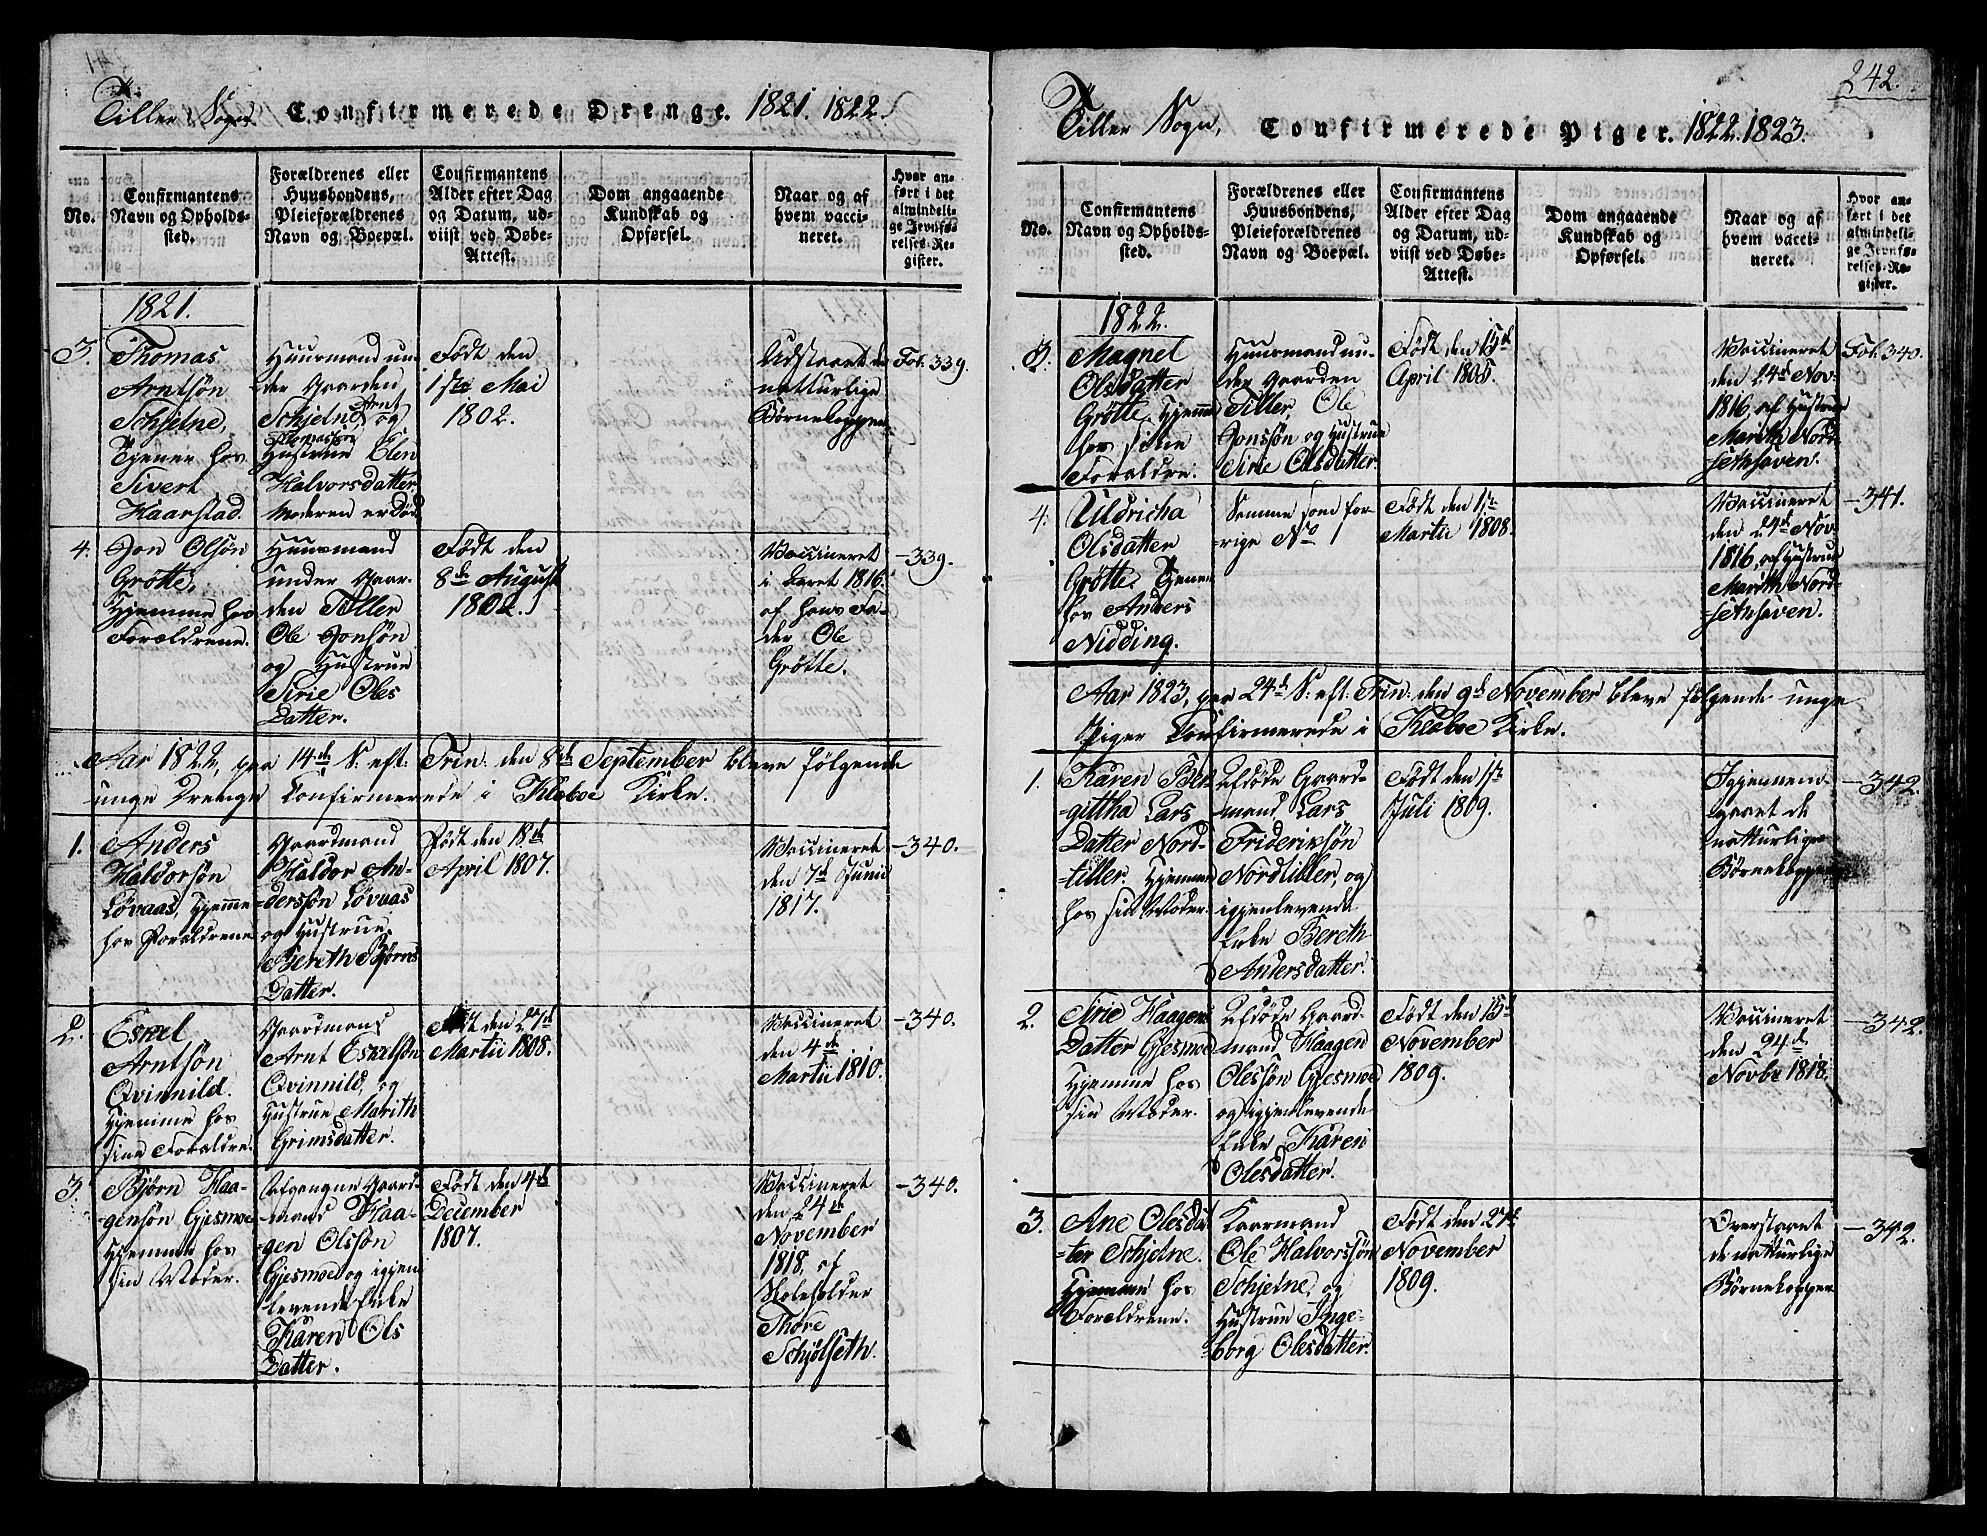 Tiller Sogn. Confirmerede Drenge. 1821. 1822.
No.
Confirmantens
Navn og Opholds-
sted.
Forældrenes eller
Huusbondens,
Pleieforældrenes
Navn og Boepæl.
Confirmantens
Alder efter Dag
og Datum, ud-
viist ved Døbe-
Attest.
Dom angaaende
Kundskab og
Opførsel.
Naar og af
hvem vacci-
neret.
Hvor an-
ført i det
almindeli-
ge Jevnfø-
relses-Re-
gister.
1821.
3.
Thomas
Arntsøn
Schjelne,
Tjener hos
Sivert
Haarstad.
Huusmand un-
der Gaarden
Schjelne, Arnt
Thomassen og
Hustrue Elen
Halvorsdatter
Moderen er død
Født den
1ste Mai
1802.
Udstaaet de
naturlige
Børnekopper
Fol. 339.
4.
Jon Olsøn
Grøtte,
Hjemme hos
Forældrene.
Huusmand
under Gaar-
den Tiller
Ole Jonsøn
og Hustrue
Sirie Oles
Datter.
Født den
8de August
1802.
Vaccineret
i Aaret 1816
af hans Fa-
der Ole
Grøtte.
-339.
Aar 1822, paa 14de S: eft: Trin: den 8de September bleve følgende
unge Drenge Confirmerede i Klæboe Kirke.
1.
Anders
Haldorsøn
Løvaas, hjemme
hos Forældrene
Gaardmand
Haldor An-
dersøn Løvaas
og Hustrue
Bereth Bjørns
Datter.
Født den 18de
April 1807.
Vaccineret
den 7de Junii
1817.
-340.
2.
Eskel
Arntsøn
Qvinnild.
Hjemme hos
sine Forældre.
Gaardmand
Arnt Eskelsøn
Qvinnild, og
Hustrue Marith
Grimsdatter.
Født den 27de
Martii 1808.
Vaccineret
den 4de
Martii 1810.
-340.
3.
Bjørn Haa-
gensøn Gjesmoe
Hjemme hos
sin Moder.
Afgangne Gaard-
mand Haa-
gen Olssøn
Gjesmoe og igjen
levende Enke
Karen Ols
Datter.
Født den 4de
December
1807.
Vaccineret
den 24de
November
1818, af
Skoleholder
Thore
Schjølseth.
-340.
242.
Tiller Sogn, Confirmerede Piger. 1822. 1823.
No.
Confirmantens
Navn og Opholds-
sted.
Forældrenes eller
Huusbondens,
Pleieforældrenes
Navn og Boepæl.
Confirmantens
Alder efter Dag
og Datum, ud-
viist ved Døbe-
Attest.
Dom angaaende
Kundskab og
Opførsel.
Naar og af
hvem vacci-
neret.
Hvor an-
ført i det
almindeli-
ge Jevnfø-
relses-Re-
gister.
1822.
3.
Magnel
Olsdatter
Grøtte, hjemme
hos sine
Forældre.
Huusmand un-
der Gaarden
Tiller, Ole
Jonssøn og Hustrue
Sirie Olsdatter.
Født den 15de
April 1805.
Vaccineret
den 24de Nov:
1816, af Hustrue
Marith Nord-
sethhaven.
Fol. 340.
4.
Uldricha
Olsdatter
Grøtte, Tjener
hos Anders
Nidding.
Samme som for-
rige No 1
Født den 1ste
Martii 1808.
Vaccineret
den 24de Nov
1816, af Hustrue
Marith Nord-
sethhaven.
-341.
Aar 1823, paa 24de S: eft: Trin: den 9de November bleve følgende unge
Piger Confirmerede i Klæboe Kirke.
1.
Karen Bir-
gittha Lars
Datter Nord-
tiller. Hjemme
hos sin Moder.
Afdøde Gaard-
mand Lars
Frideriksøn
Nordtiller, og
igjenlevende
Enke Bereth
Andersdatter.
Født den 1ste
Juli 1809.
Igjennem-
gaaet de
naturlige
Børnekopper
-342.
2.
Sirie Haagens
Datter Gjesmoe
Hjemme hos
sin Moder.
Afdøde Gaard-
mand Haagen
Olessøn Gjesmoe
og igjenlevende
Enke Karen
Olesdatter.
Født den 15de
November
1809.
Vaccineret
den 24de
Novbr 1818.
-342.
3.
Ane Olesdat
ter Schjelne.
Hjemme hos
Forældrene.
Kaarmand
Ole Halvorssøn
Schjelne, og
Hustrue Inge-
borg Olesdatter.
Født den 27de
November
1809.
Overstaaet
de naturlige
Børnekopper
-342.